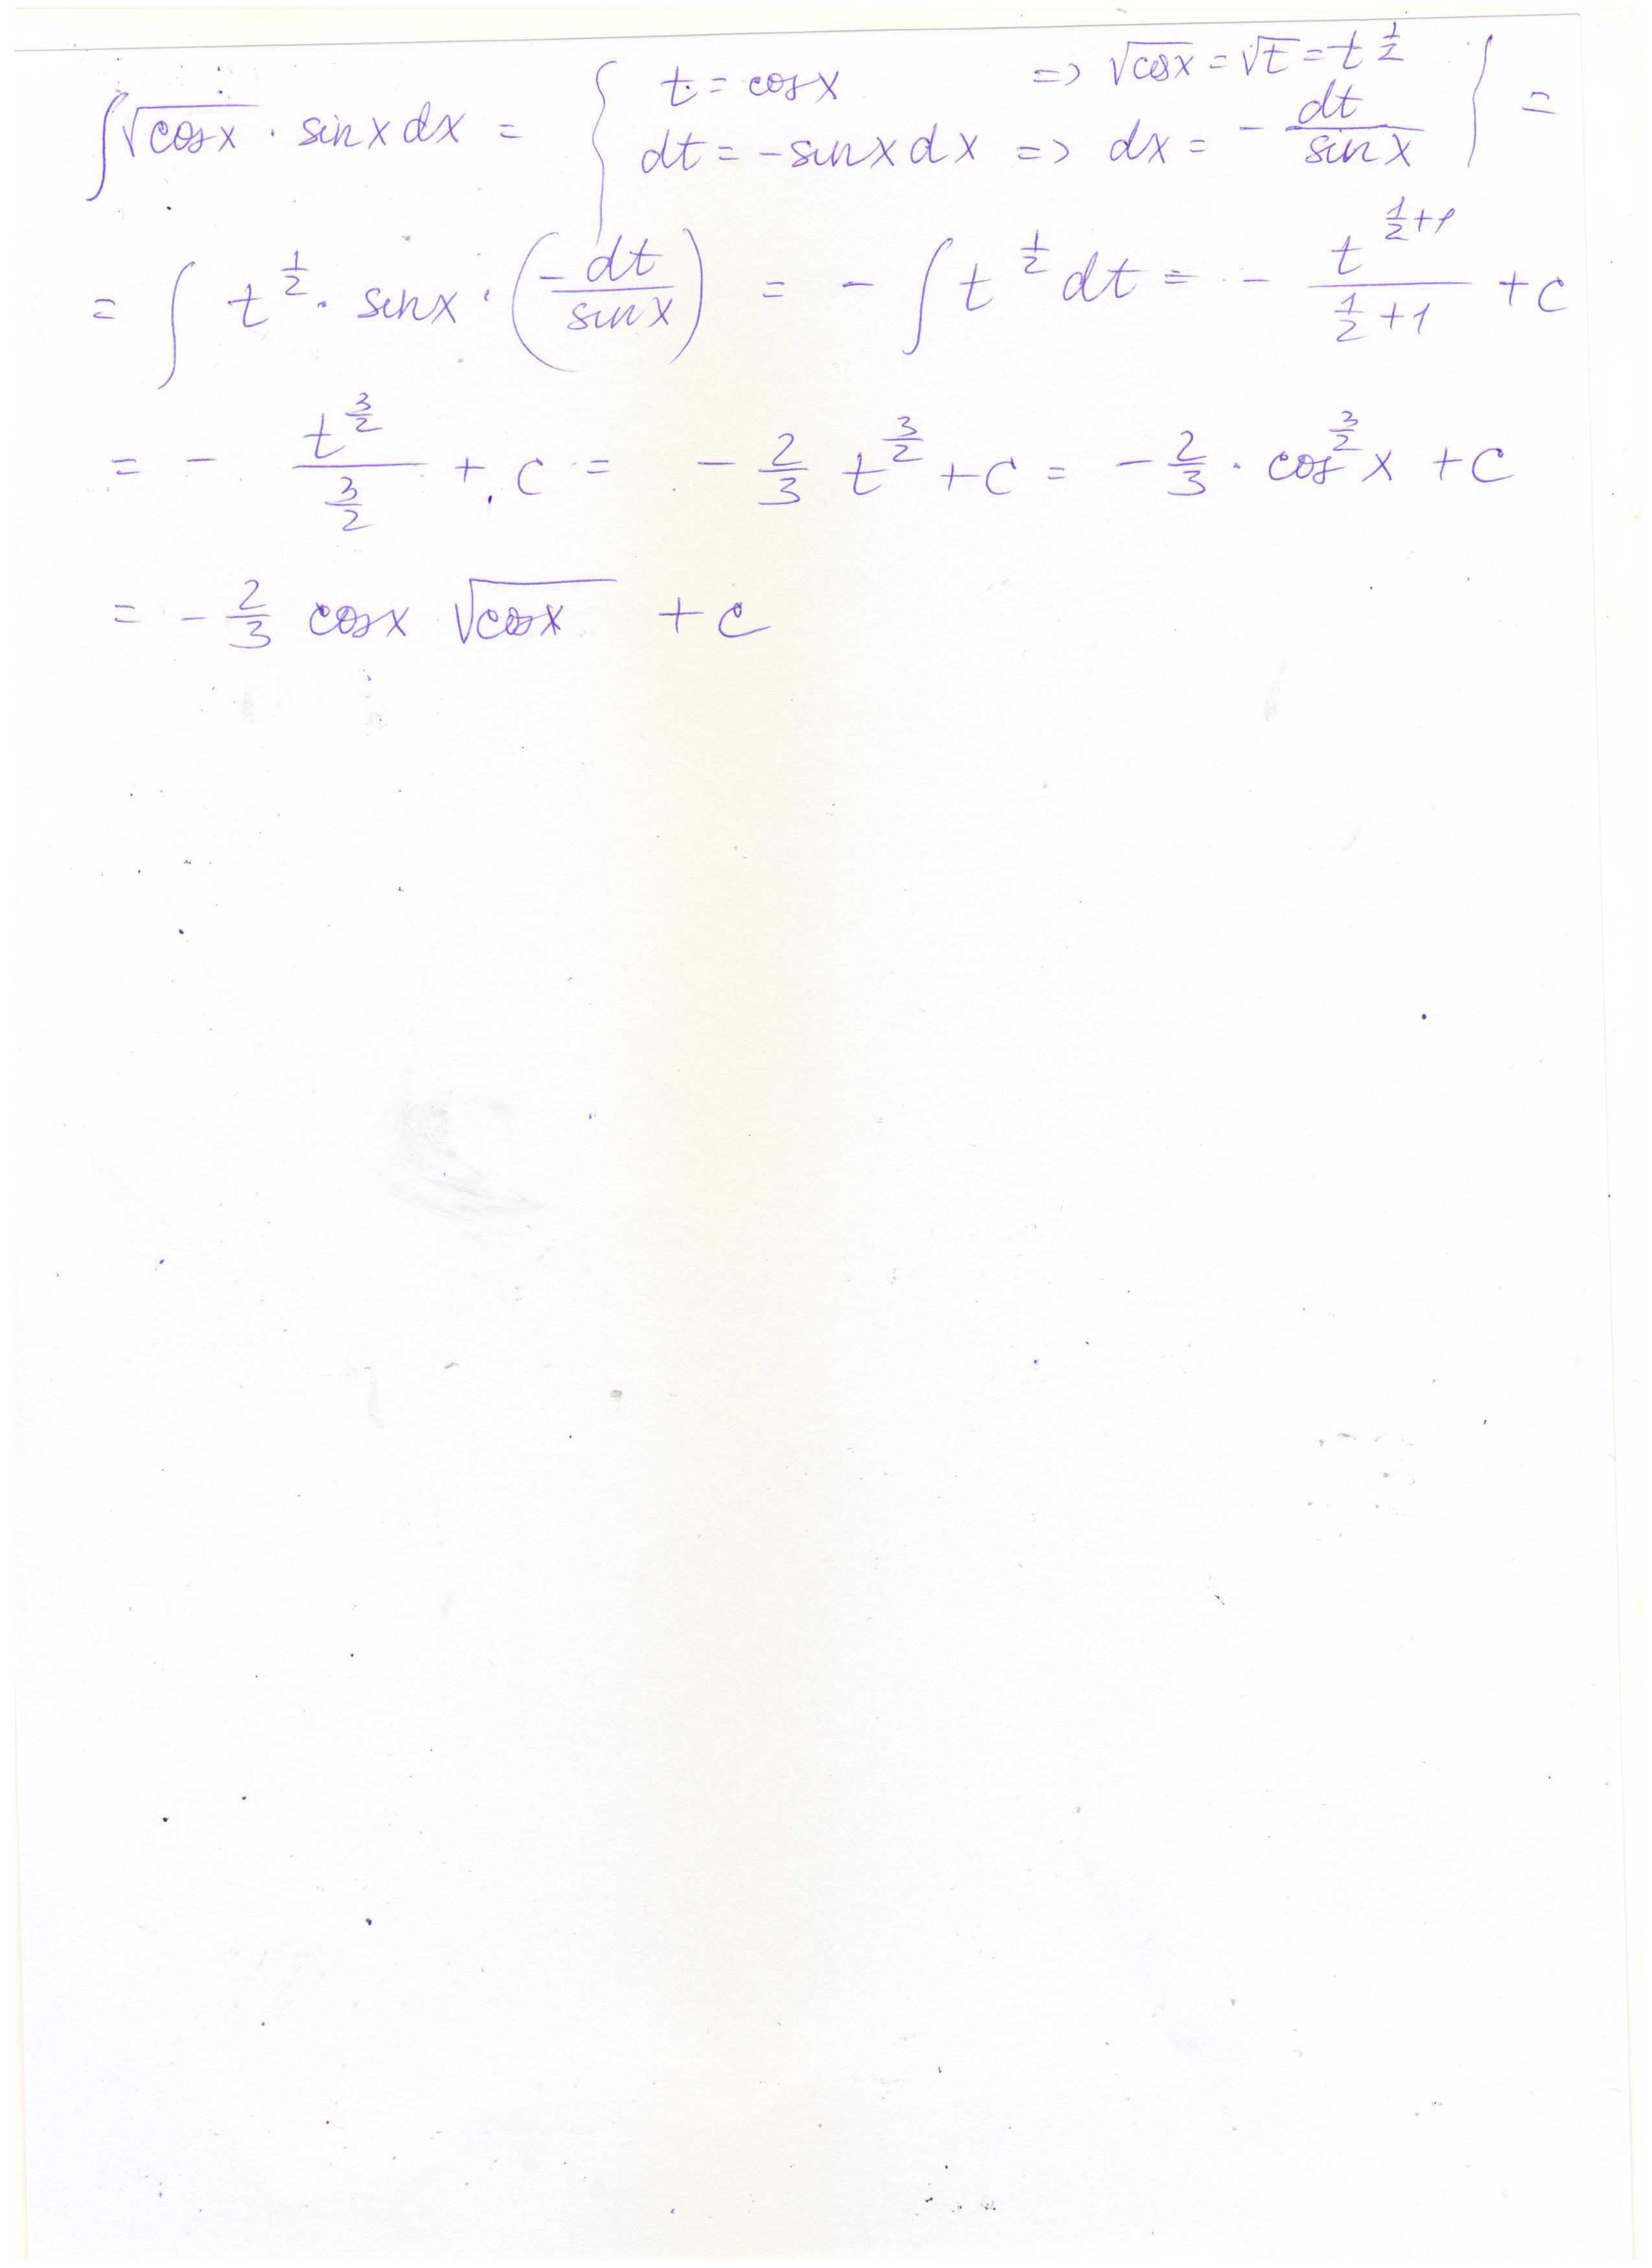 ∫√cosx · sinx dx = { t = cosx => √cosx = √t = t^{1/2}
dt = -sinx dx => dx = - dt/sinx } =
= ∫ t^{1/2} · sinx · (-dt/sinx) = - ∫ t^{1/2} dt = - t^{1/2+1}/(1/2+1) + C
= - t^{3/2}/(3/2) + C = - 2/3 t^{3/2} + C = - 2/3 · cos^{3/2} x + C
= - 2/3 cosx √cosx + C